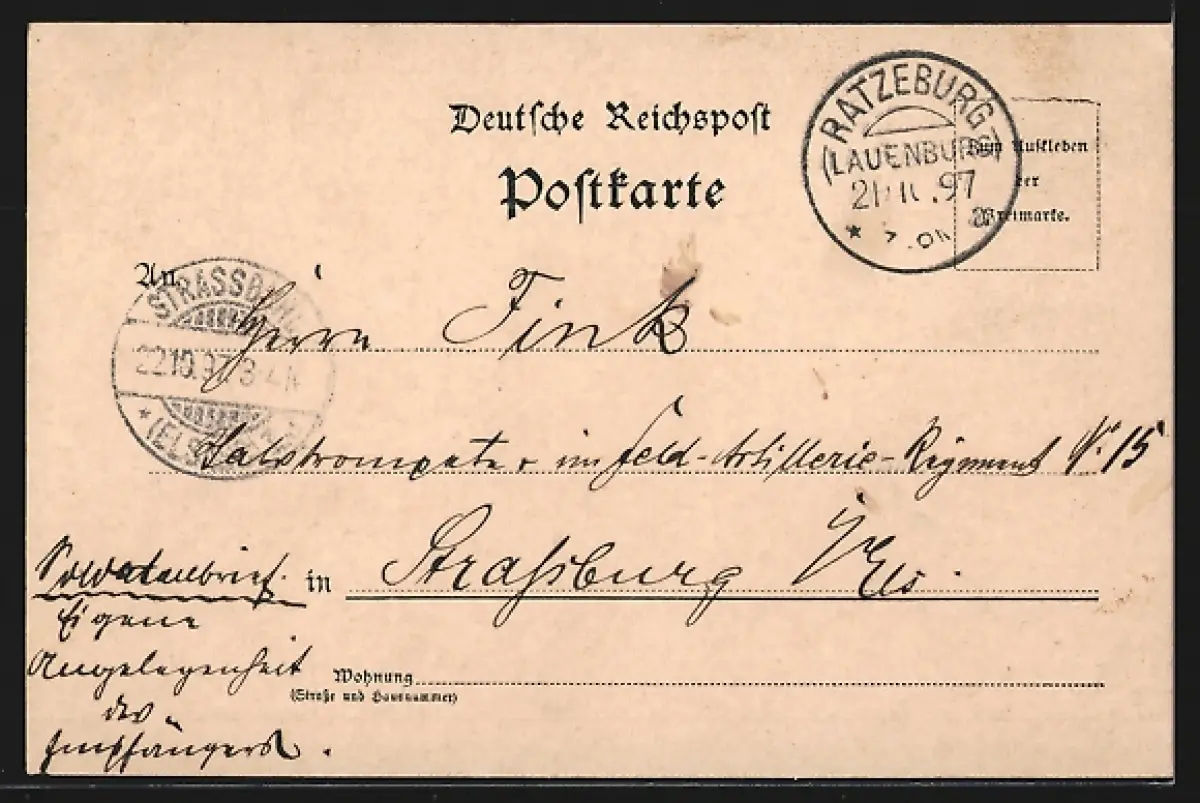 Deutsche Reichspost
Postkarte
RATZEBURG
(LAUENBURG)
97
Zum Aufkleben
der
Freimarke.
An
STRASSBURG
22.10.97. 3-4N
(ELS.)
Herrn Fink
im Feld-Artillerie-Regiment No. 15
in Straßburg i/Els.
Soldatenbrief.
Eigene
Angelegenheit
des
Empfängers.
Wohnung
(Straße und Hausnummer)